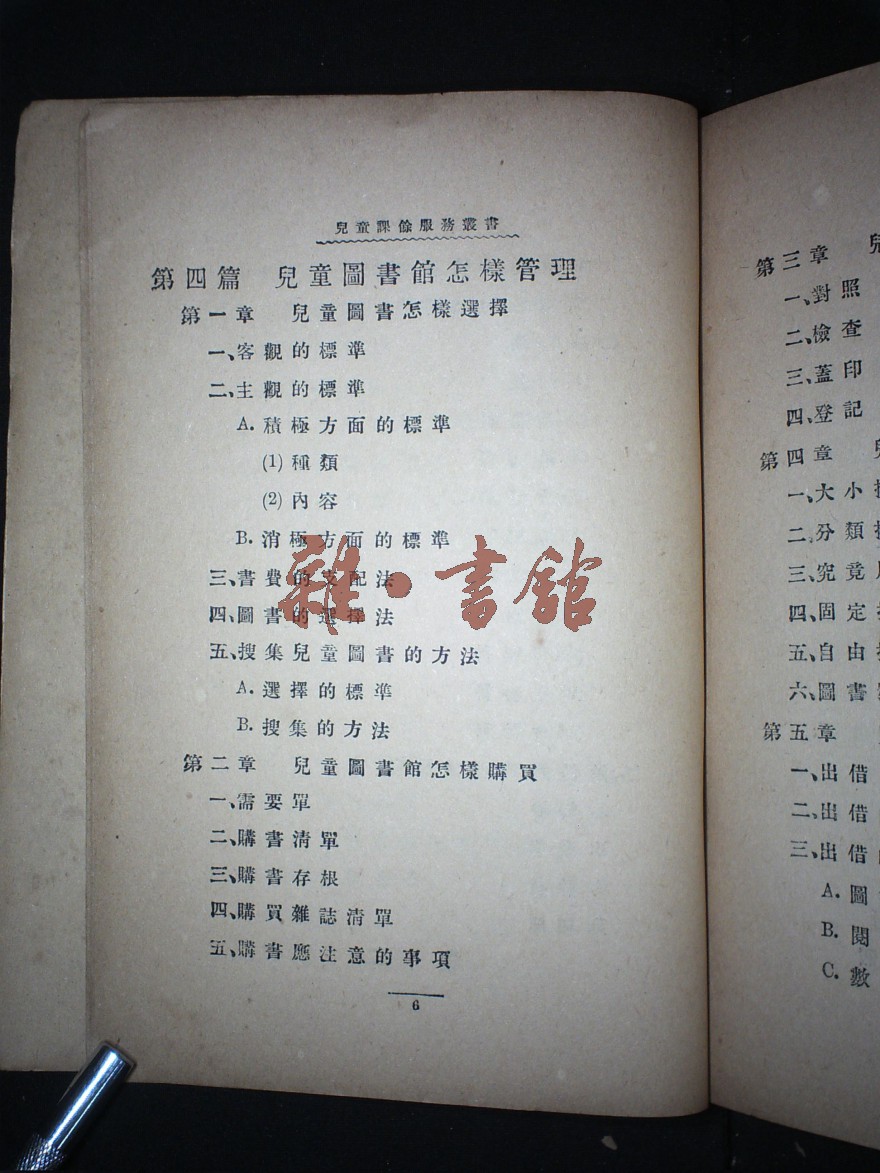 兒童課餘服務叢書
第四篇 兒童圖書館怎樣管理
第一章 兒童圖書怎樣選擇
一、客觀的標準
二、主觀的標準
A. 積極方面的標準
(1) 種類
(2) 內容
B. 消極方面的標準
三、書費的支配法
四、圖書的選擇法
五、搜集兒童圖書的方法
A. 選擇的標準
B. 搜集的方法
第二章 兒童圖書館怎樣購買
一、需要單
二、購書清單
三、購書存根
四、購買雜誌清單
五、購書應注意的事項
6
雜·書館
第三章
一、對照
二、檢查
三、蓋印
四、登記
第四章
一、大小
二、分類
三、究竟
四、固定
五、自由
六、圖書
第五章
一、出借
二、出借
三、出借
A. 圖
B. 閱
C. 數